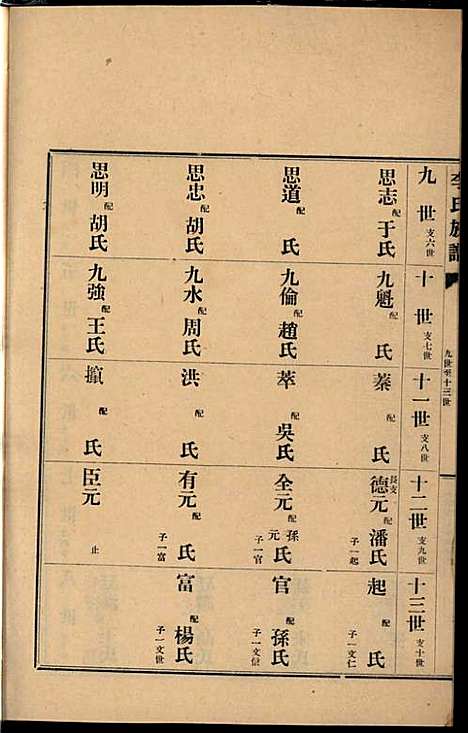 李氏族譜
九世至十三世
九世 支六世
十世 支七世
十一世 支八世
十二世 支九世
十三世 支十世
思志 配于氏
九魁 配 氏
蓁 配 氏
長支 德元 配潘氏 子一起
起 配 氏 子一文仁
思道 配 氏
九倫 配趙氏
萃 配吳氏
全元 配孫氏 子一官
官 配孫氏 子一文信
思忠 配胡氏
九水 配周氏
洪 配 氏
有元 配 氏 子一富
富 配楊氏 子一文世
思明 配胡氏
九強 配王氏
配 氏
臣元 止